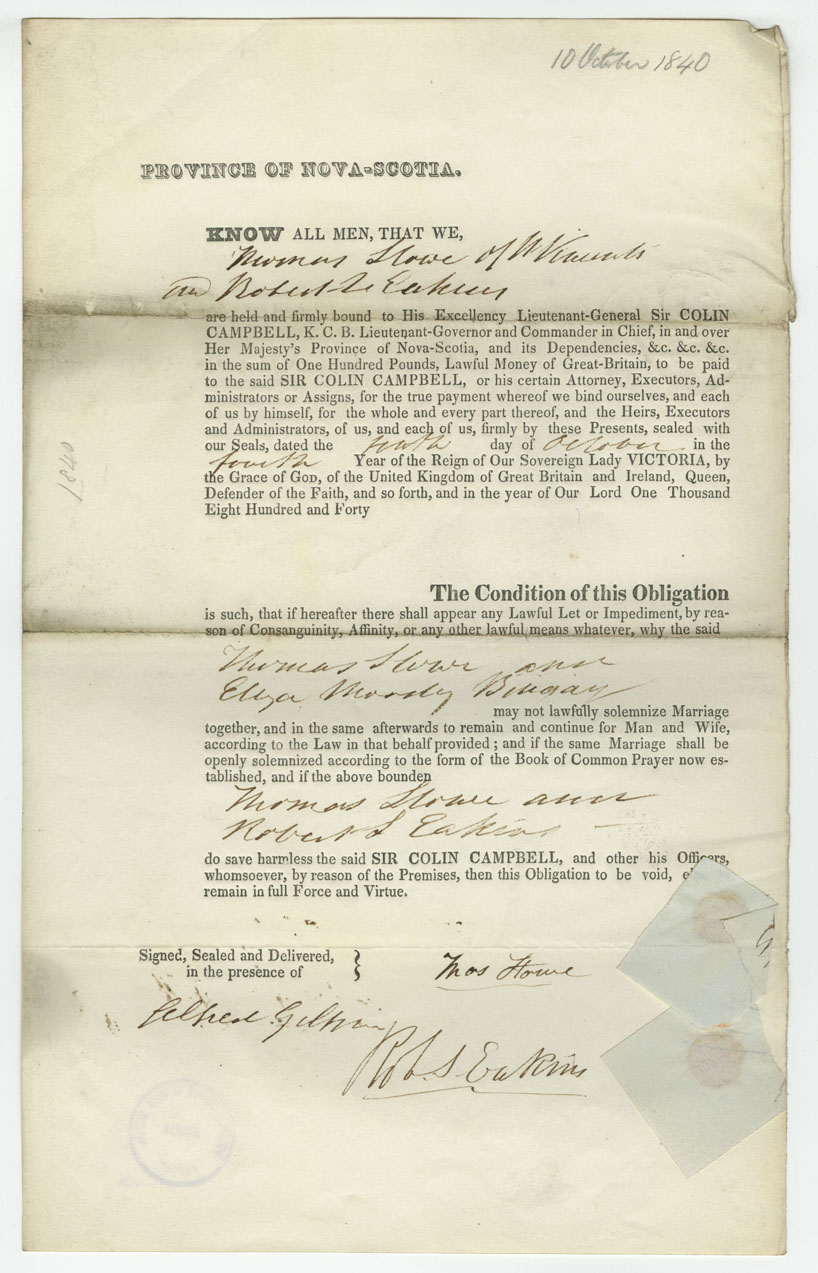 10 October 1840
PROVINCE OF NOVA-SCOTIA.
KNOW ALL MEN, THAT WE,
Thomas Stowe of
and Robert S Eakins
are held and firmly bound to His Excellency Lieutenant-General Sir COLIN
CAMPBELL, K. C. B. Lieutenant-Governor and Commander in Chief, in and over
Her Majesty's Province of Nova-Scotia, and its Dependencies, &c. &c. &c.
in the sum of One Hundred Pounds, Lawful Money of Great-Britain, to be paid
to the said SIR COLIN CAMPBELL, or his certain Attorney, Executors, Ad-
ministrators or Assigns, for the true payment whereof we bind ourselves, and each
of us by himself, for the whole and every part thereof, and the Heirs, Executors
and Administrators, of us, and each of us, firmly by these Presents, sealed with
our Seals, dated the tenth day of October in the
fourth Year of the Reign of Our Sovereign Lady VICTORIA, by
the Grace of GOD, of the United Kingdom of Great Britain and Ireland, Queen,
Defender of the Faith, and so forth, and in the year of Our Lord One Thousand
Eight Hundred and Forty
1840
The Condition of this Obligation
is such, that if hereafter there shall appear any Lawful Let or Impediment, by rea-
son of Consanguinity, Affinity, or any other lawful means whatever, why the said
Thomas Stowe and
Eliza Moody Bingay
may not lawfully solemnize Marriage
together, and in the same afterwards to remain and continue for Man and Wife,
according to the Law in that behalf provided; and if the same Marriage shall be
openly solemnized according to the form of the Book of Common Prayer now es-
tablished, and if the above bounden
Thomas Stowe and
Robert S Eakins
do save harmless the said SIR COLIN CAMPBELL, and other his Officers,
whomsoever, by reason of the Premises, then this Obligation to be void,
remain in full Force and Virtue.
Signed, Sealed and Delivered,
in the presence of
Thos Stowe
Alfred
Rob. S Eakins